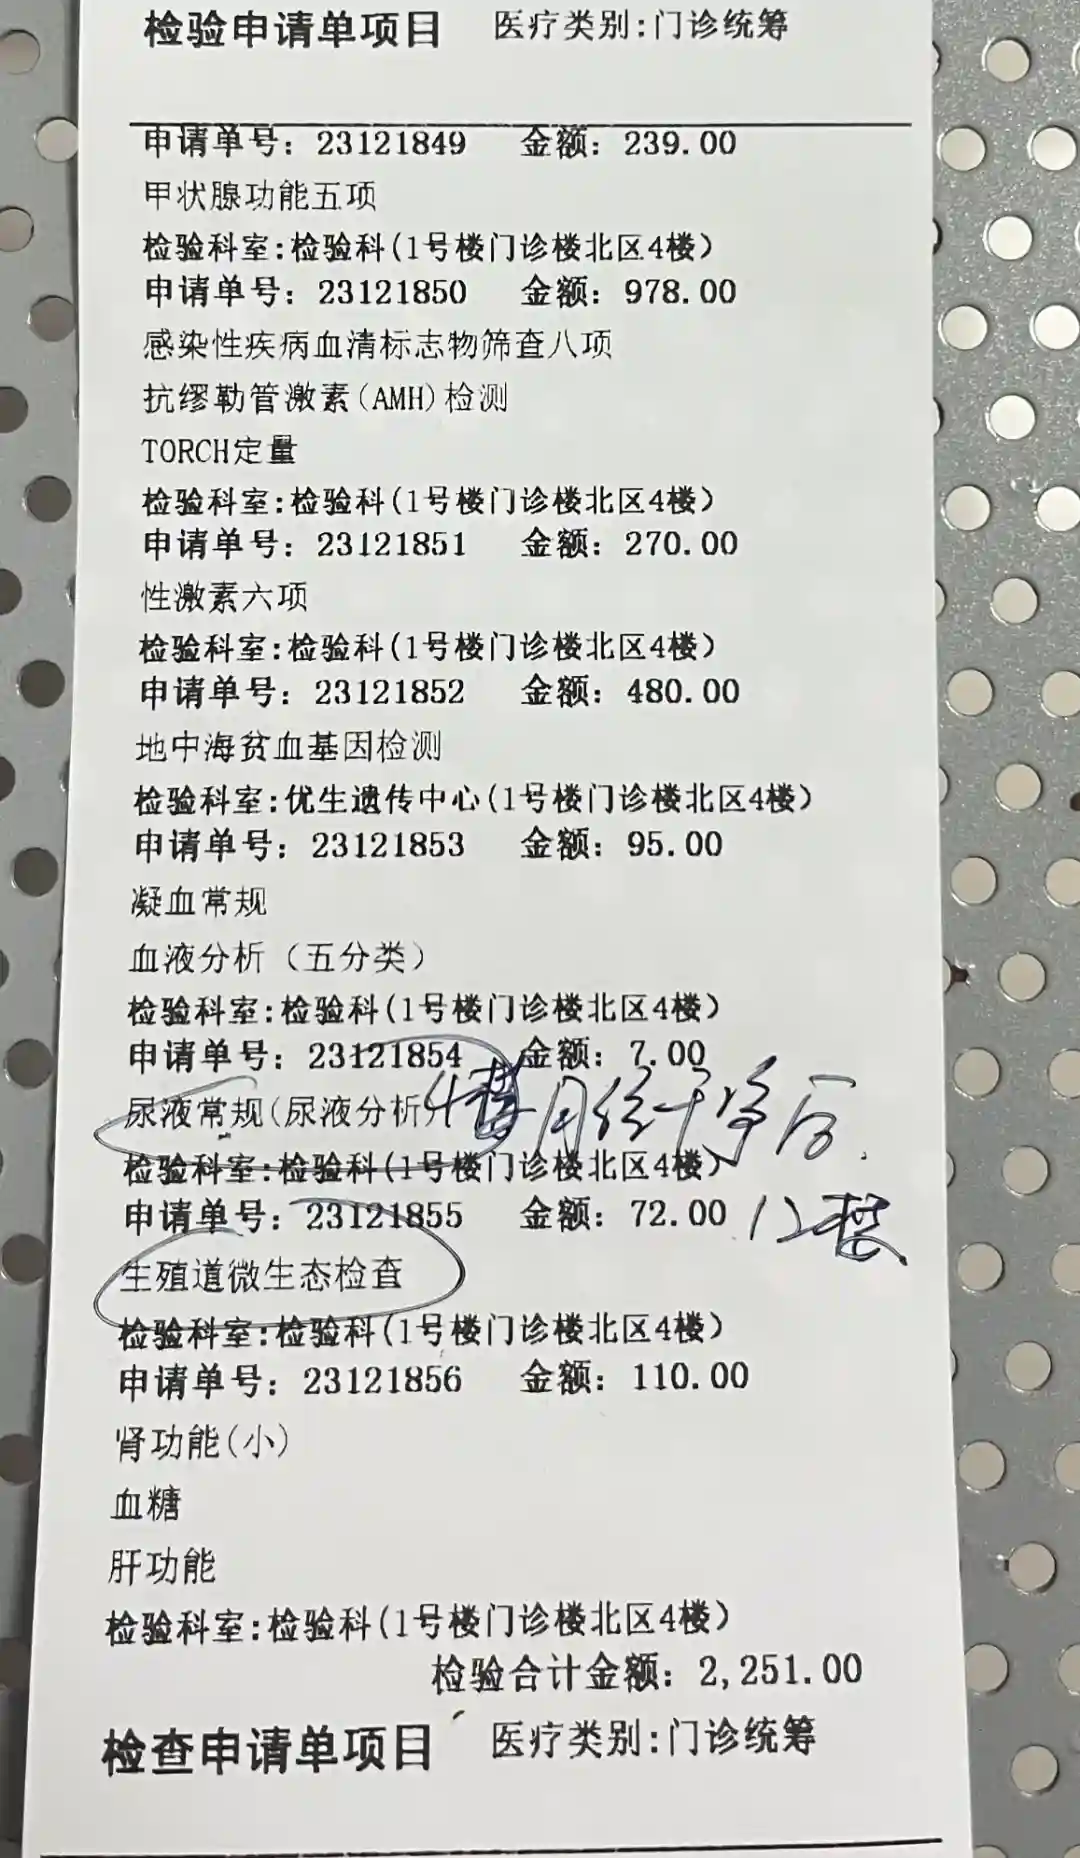 检验申请单项目 医疗类别:门诊统筹
申请单号: 23121849 金额: 239.00
甲状腺功能五项
检验科室:检验科(1号楼门诊楼北区4楼)
申请单号: 23121850 金额: 978.00
感染性疾病血清标志物筛查八项
抗缪勒管激素(AMH)检测
TORCH定量
检验科室:检验科(1号楼门诊楼北区4楼)
申请单号: 23121851 金额: 270.00
性激素六项
检验科室:检验科(1号楼门诊楼北区4楼)
申请单号: 23121852 金额: 480.00
地中海贫血基因检测
检验科室:优生遗传中心(1号楼门诊楼北区4楼)
申请单号: 23121853 金额: 95.00
凝血常规
血液分析（五分类）
检验科室:检验科(1号楼门诊楼北区4楼)
申请单号: 23121854 金额: 7.00
尿液常规(尿液分析)
月经干净后
检验科室:检验科(1号楼门诊楼北区4楼)
申请单号: 23121855 金额: 72.00
生殖道微生态检查
检验科室:检验科(1号楼门诊楼北区4楼)
申请单号: 23121856 金额: 110.00
肾功能(小)
血糖
肝功能
检验科室:检验科(1号楼门诊楼北区4楼)
检验合计金额: 2,251.00
检查申请单项目 医疗类别:门诊统筹